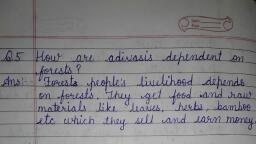 Q5 How are adivasis dependent on
forests?
Ans:- Forests people's livelihood depends
on forests. They get food and raw
materials like leaves, herbs, bamboo
etc which they sell and earn money.